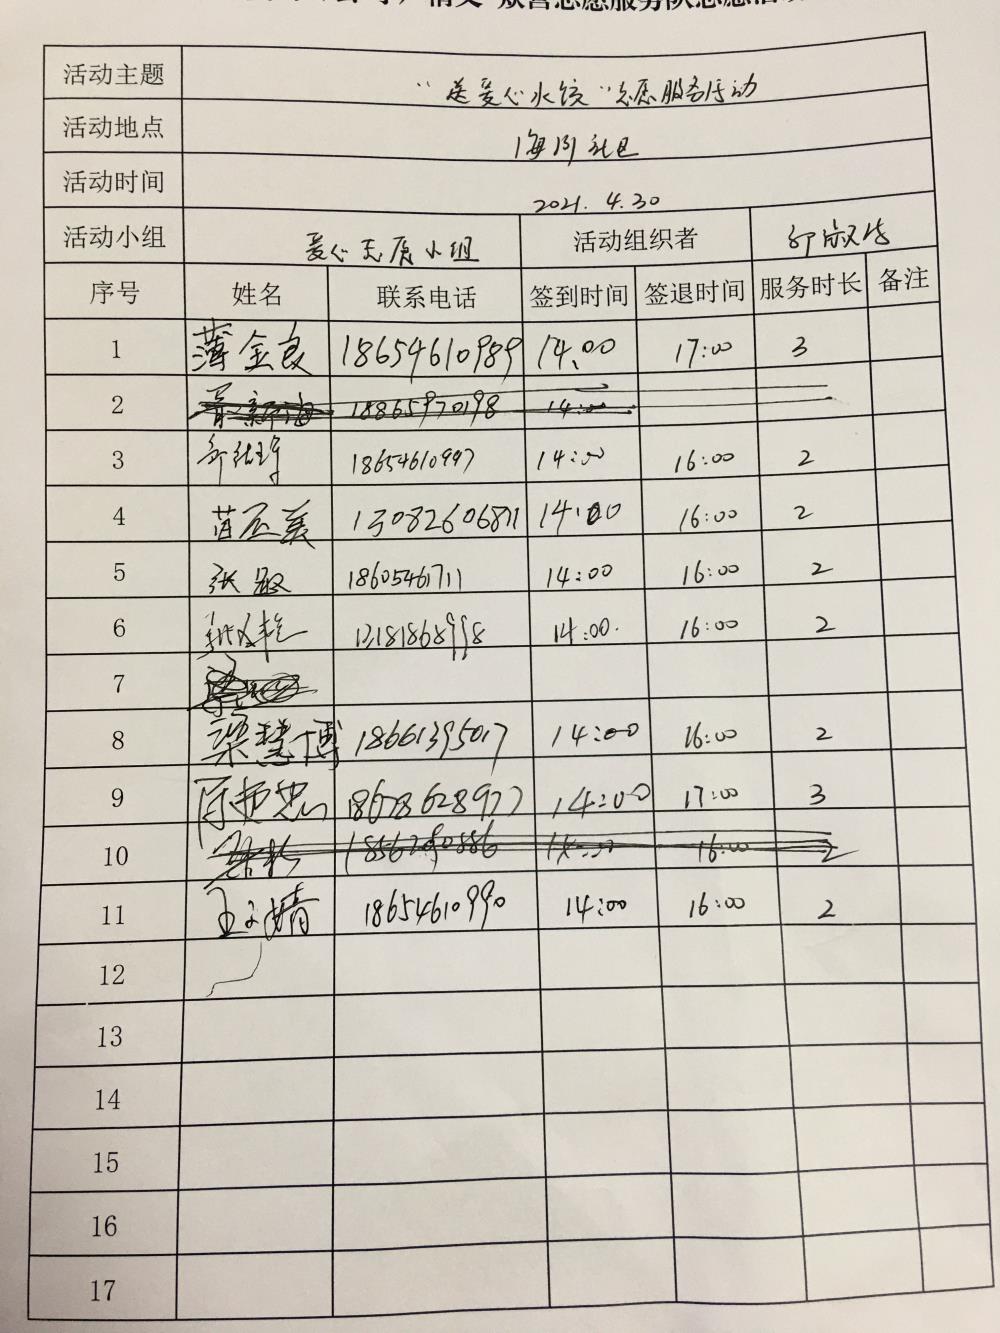 众善志愿服务队志愿活动
活动主题 “送爱心水饺”志愿服务活动
活动地点 海河社区
活动时间 2021.4.30
活动小组 爱心志愿小组 活动组织者
序号 姓名 联系电话 签到时间 签退时间 服务时长 备注
1 薄金良 18654610989 14:00 17:00 3
2 18865970198 14:00
3 18654610997 14:00 16:00 2
4 苗丕美 13082606811 14:00 16:00 2
5 张敏 18605461711 14:00 16:00 2
6 13181868998 14:00. 16:00 2
7
8 梁慧博 18661395017 14:00 16:00 2
9 18678628977 14:00 17:00 3
10 16:00 2
11 王文婧 18654610990 14:00 16:00 2
12
13
14
15
16
17